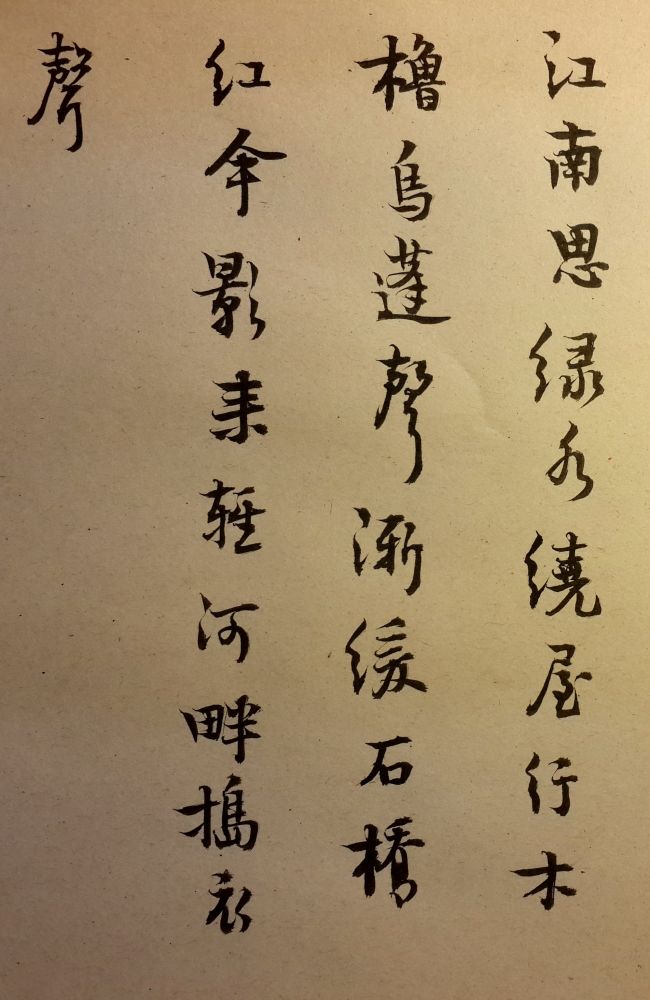 江南思绿水繞屋行木
櫓烏蓬聲漸缓石橋
红伞影来輕河畔搗衣
聲